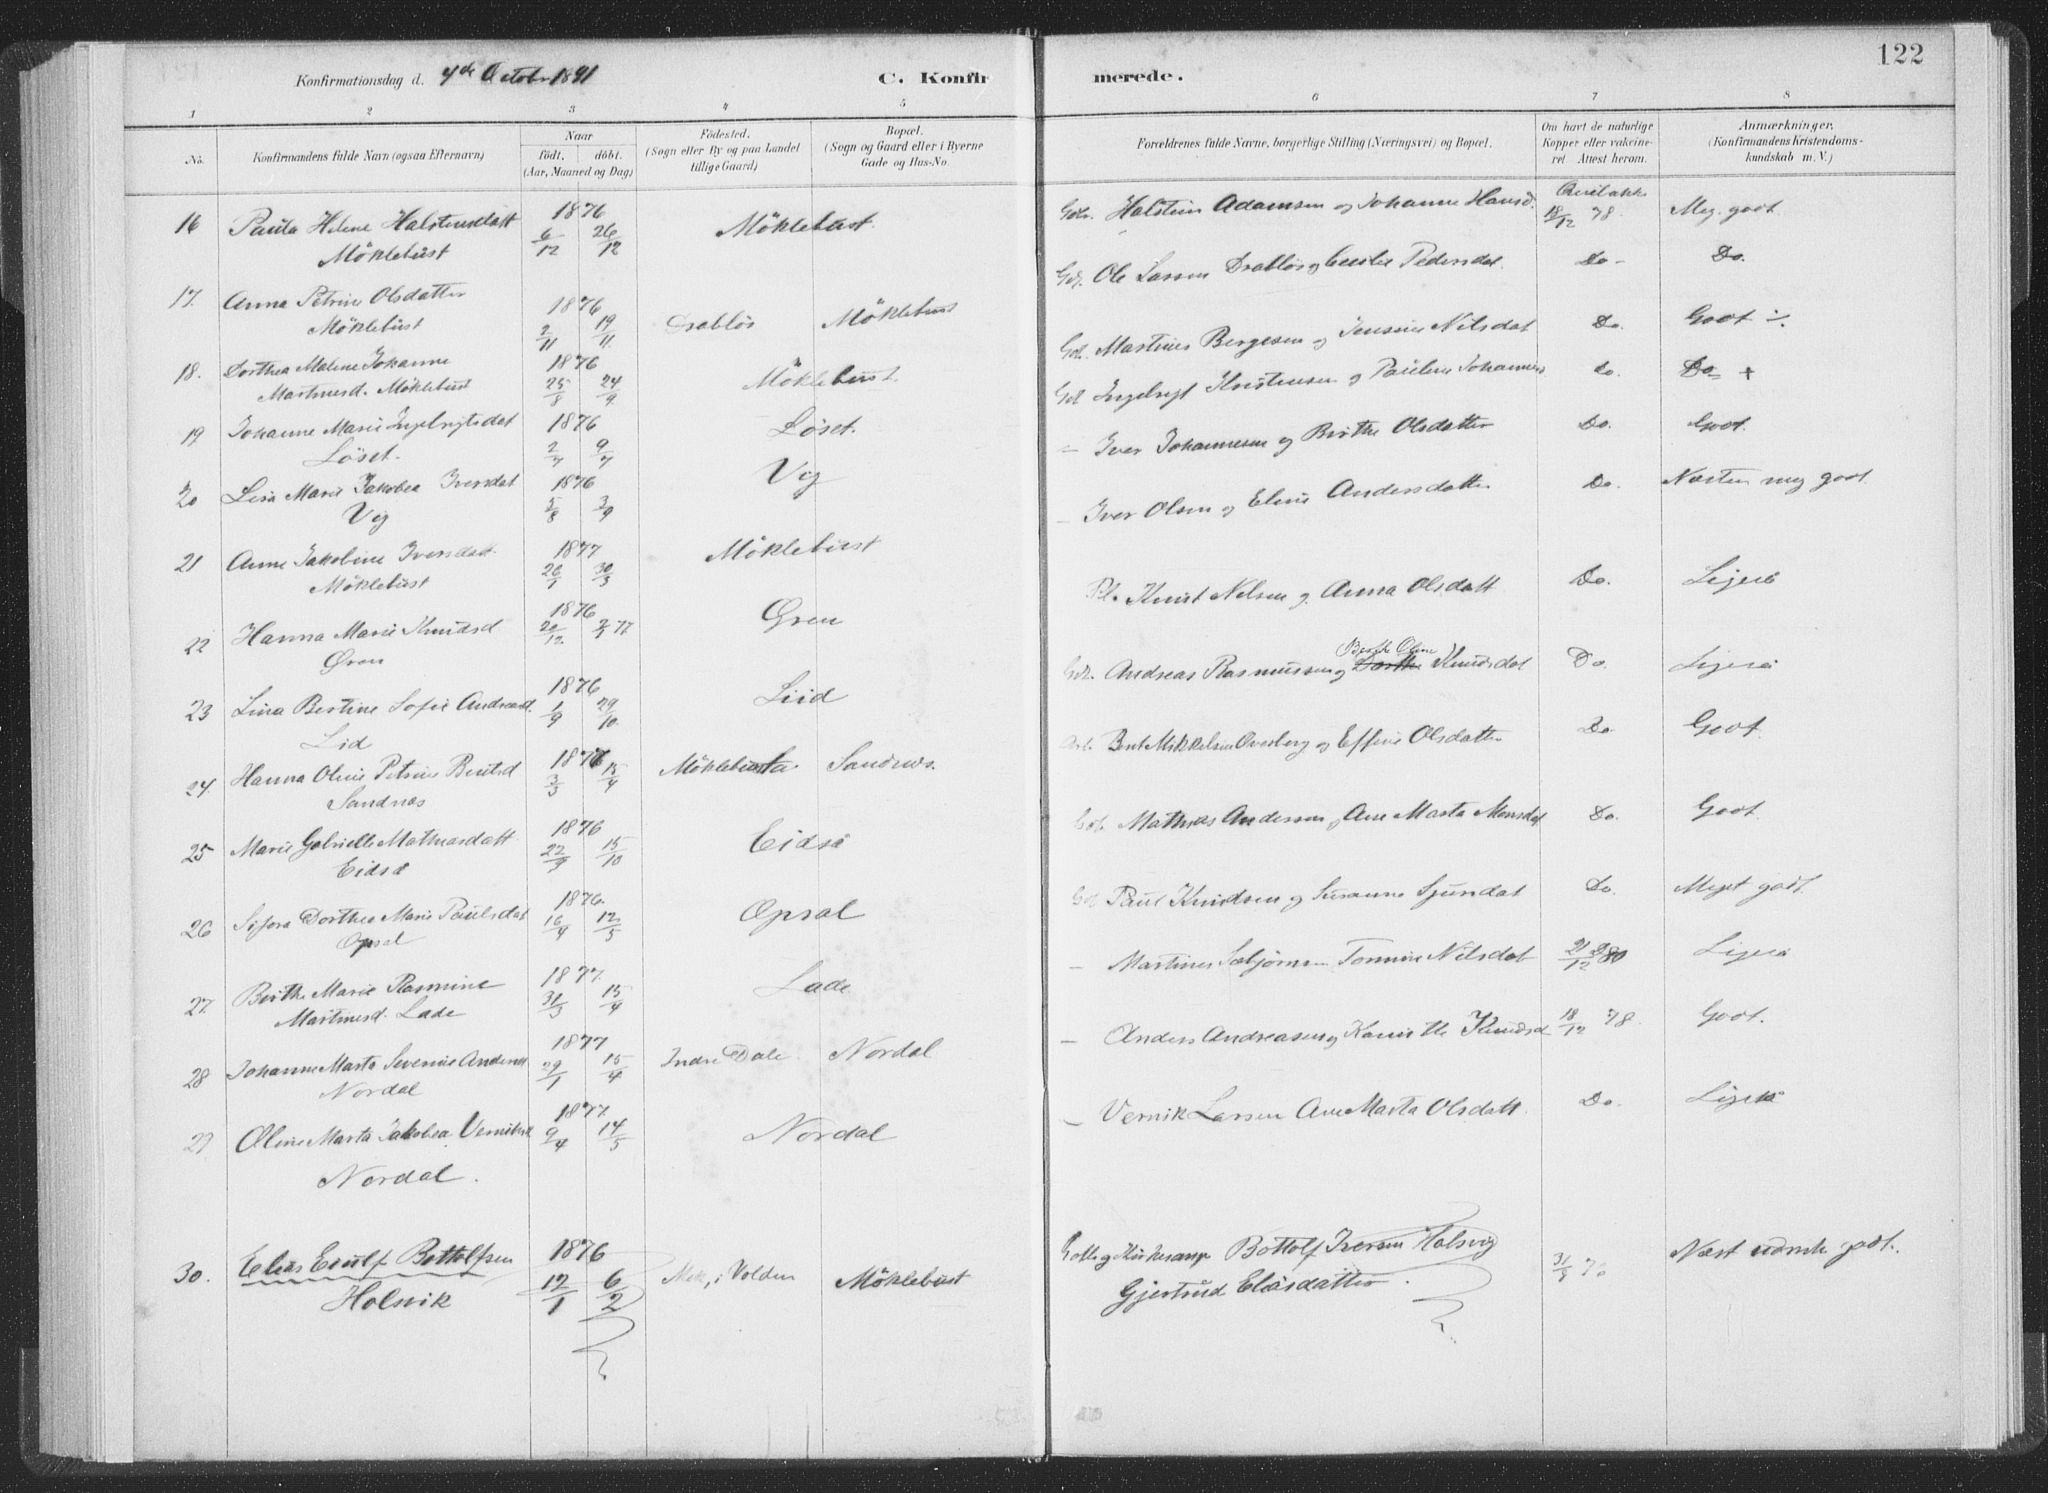 122
Konfirmationsdag d. 4de Octobr 1891 C. Konfir merede.
1 2 3 4 5 6 7 8
No. Konfirmandens fulde Navn (ogsaa Efternavn)
Naar
födt, döbt.
(Aar, Maaned og Dag)
Födested.
(Sogn eller By og paa Landet
tillige Gaard)
Bopæl.
(Sogn og Gaard eller i Byerne
Gade og Hus-No.
Forældrenes fulde Navne, borgerlige Stilling (Næringsvei) og Bopæl.
Om havt de naturlige
Kopper eller vakcine-
ret. Attest herom.
Anmærkninger,
(Konfirmandens Kristendoms-
kundskab m. V.)
16 Paula Helene Halstensdatt 1876 6/12 26/12 Möklebust. Halstein Adamsen og Johanne Hansd. 18/12 78. Meg. godt
Möklebust
17. Anna Petrine Olsdatter 1876 2/11 19/11 Drabløs Möklebust Ole Larsen Drabløs og Pedersdat. Do - Do.
Möklebust
18. Dorthea Malene Johanne 1876 25/8 24/9 Möklebust. Martinus Bergesen og Jensine Nilsdat Do. Godt ÷
Martinusd. Möklebust
19 Johanne Marie Ingebrigtsdat 1876 2/7 9/7 Löset. Kristensen og Pauline Johannes Do. Do +
Löset.
20 Lina Marie Jakobea Iversdat 1876 5/8 3/9 Vig Iver Johannesen og Birthe Olsdatter Do. Godt.
Vig
21 Anne Jakobine Iversdatt. 1877 26/1 30/3 Möklebust Iver Olsen og Eline Andersdatter Do. Næsten meg godt
Möklebust
22 Hanna Marie Knudsd 1876 20/12 77 Øren Pl. Knut Nilsen og Anna Olsdatt Do. Ligesaa
Øren
23 Lina Bertine Sofie Andreasd. 1876 1/9 29/10. Liid Andreas Rasmussen og Berthe Oline Knudsdat Do. Ligesaa
Lid
24. Hanna Oline Petrine Bentsd 1876 3/3 15/4 Sandnes. Bent Mikkelsen Overberg og Effine Olsdatter Do Godt.
Sandnes
25 Marie Gabrielle Mathiasdatt 1876 22/9 15/10 Eidsaa Mathias Andersen og Ane Marta Monsdat Do. Godt.
Eidsaa
26 Dorthea Marie Paulsdat 1876. 16/4 12/5 Opsal Paul Knudsen og Susanne Sjursdat Do. Meget godt.
Opsal
27. Birthe Marie Rasmine 1877. 31/3 15/4 Lade - Martinus Nilsdat 21/12 80 Ligesaa
Martinusd. Lade
28 Johanne Marta Severine Andersd 1877 29/1 15/4 Indre Dale. Nordal - Anders Andreasen og Knudsd 18/12 78. Godt.
Nordal
29 Oline Marta Jakobea Verniksd 1877. 9/4 14/5 Nordal - Vernik Larsen Ane Marta Olsdatt. Do. Ligesaa
Nordal.
30. Elias Eculf Bottolfsen 1876 12/1 6/2 i Volden Möklebust Bottolf Iversen Holsvig 31/8 Næst udmrk godt.
Holsvik Gjertrud Eliasdatter.